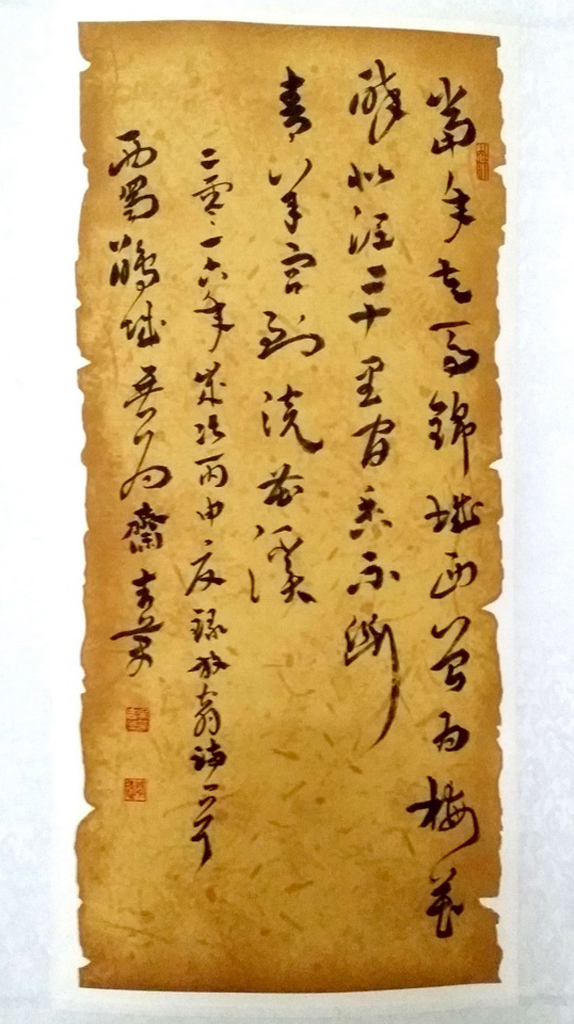 當年走馬錦城西曾為梅花
醉似泥二十里間香不斷
青羊宮到浣花溪
二零一六年歲次丙申夏錄放翁詩一首
西蜀鵑城齋